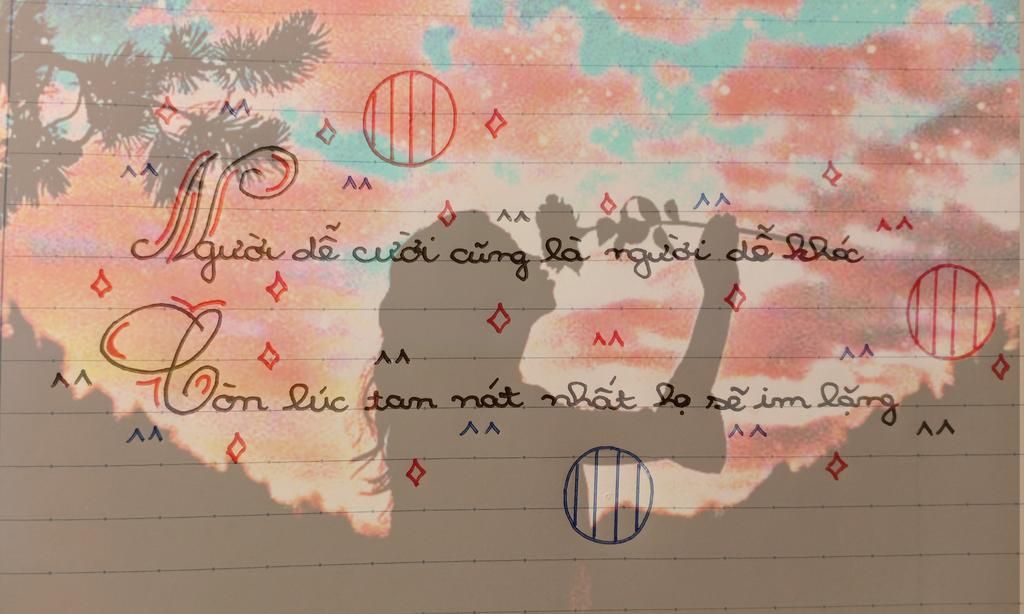 Người dễ cười cũng là người dễ khóc
Còn lúc tan nát nhất họ sẽ im lặng